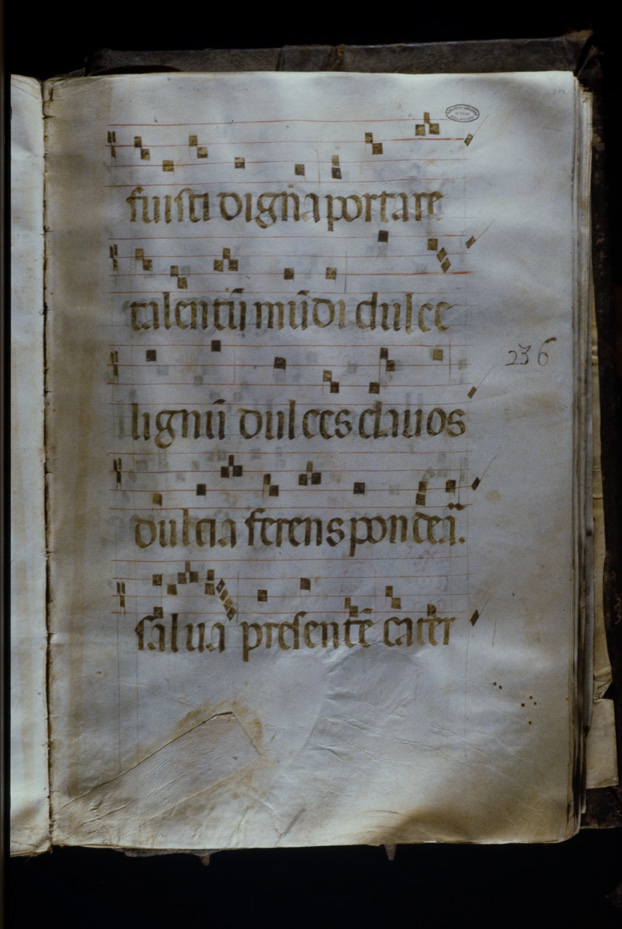 fuisti digna portare
talentū mūdi dulce
lignū dulces clauos
dulcia ferens ponderā.
salua presentē cater
236